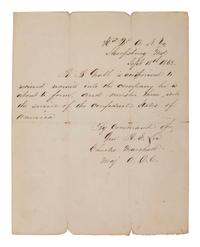 Hd Qrs A. N. Va
Sharpsburg Md
Sept 15th 1862
is authorized to
recruit men into the company he is
about to form, and muster them into
the service of the Confederate States of
America
By command of
Gen R. E. Lee
Charles Marshall
Maj A.D.C.